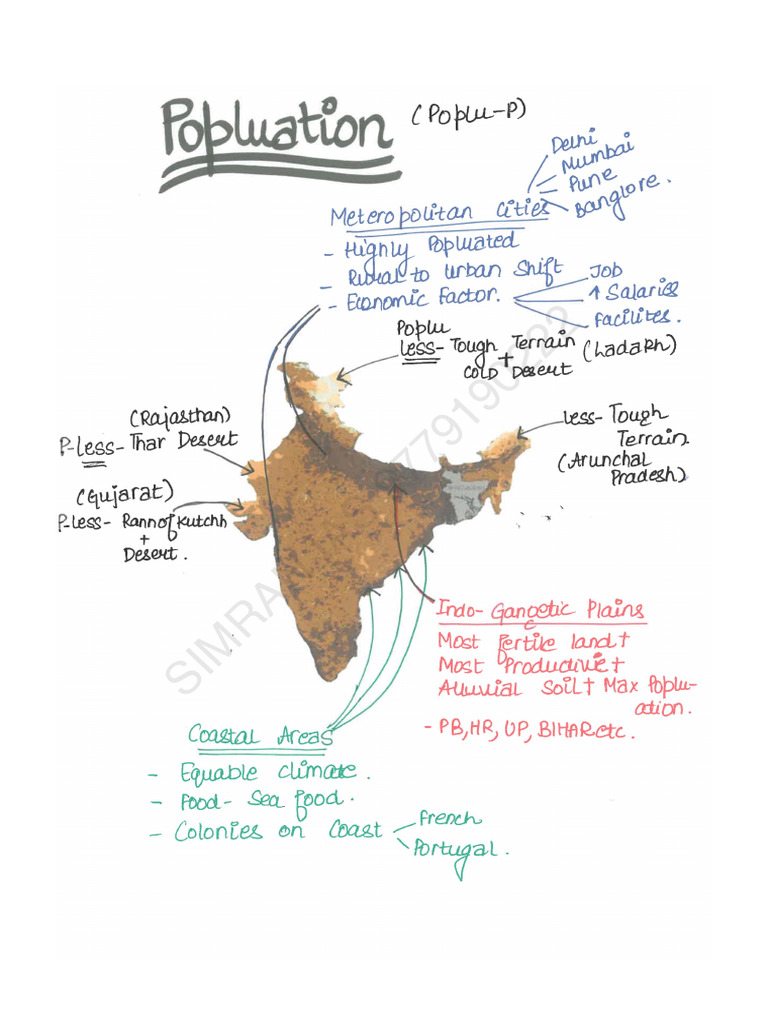 Popluation (Poplu-P)
Delhi
Mumbai
Pune
Banglore.
Meteropolitan cities
- Highly Popluated
- Rural to urban shift
- Economic Factor.
Job
↑ Salariss
facilites.
Poplu
less- Tough Terrain (Ladakh)
+
COLD Desert
less- Tough
Terrain
(Arunchal
Pradesh)
(Rajasthan)
P-less- Thar Desert
(Gujarat)
P-less- Rann of Kutchh
+
Desert.
Indo- Gangetic Plains
Most fertile land +
Most Productive +
Alluvial soil + Max Poplu-
ation.
- PB, HR, UP, BIHAR etc.
Coastal Areas
- Equable climate.
- Food- Sea food.
- Colonies on Coast
French
Portugal.